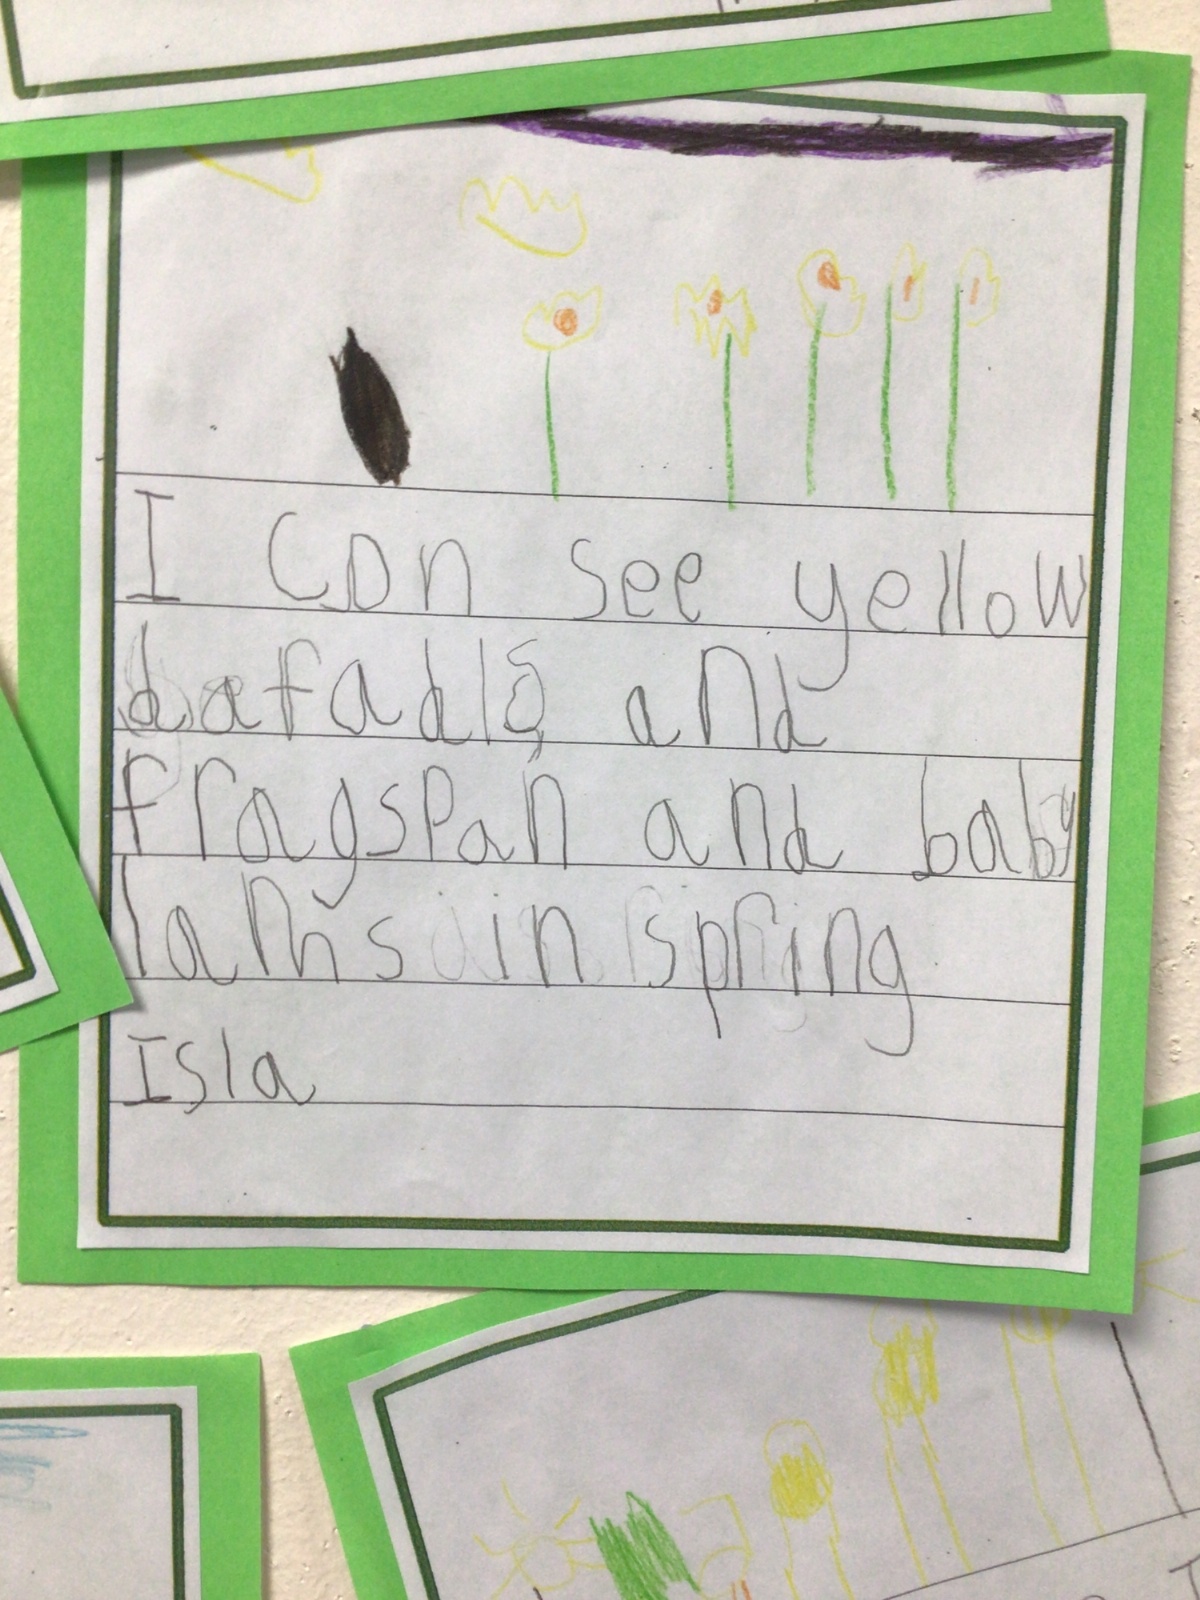 I can see yellow
dafadls and
fragspan and baby
lams in spring
Isla